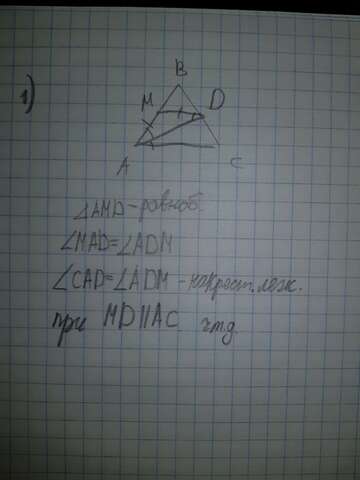 1)
B
M
D
A
C
∠AMD - равноб.
∠MAD=∠ADM
∠CAD=∠ADM - накрест. леж.
при MD||AC чтд.